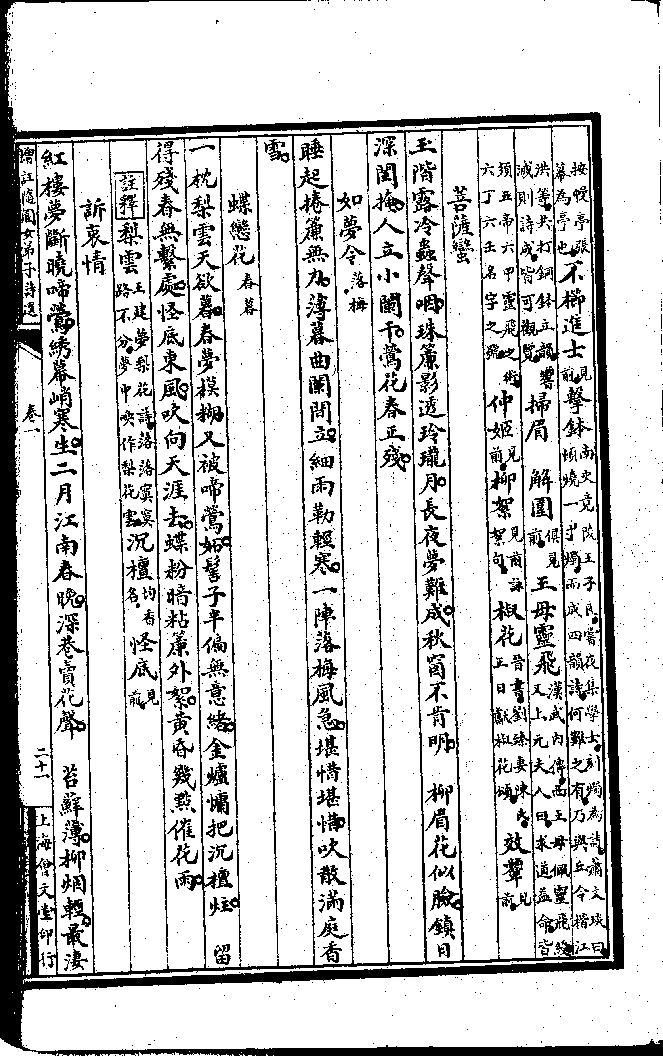 按幔亭張
幕為亭也不櫛進士見前擊鉢南史竟陵王子良嘗夜集學士刻燭為詩蕭文琰曰頓燒一寸燭而成四韻詩何難之有乃與丘令楷江
洪等共打銅鉢立韻響滅則詩成皆可觀覽掃眉 解圍俱見前王母靈飛漢武內傳西王母佩靈飛綬又上元夫人曰求道益命皆
須五帝六甲靈飛之術六丁六壬名字之號仲姬見前柳絮見前詠絮句椒花昔書劉臻妻陳氏正日獻椒花頌效顰見前
菩薩蠻
玉階露冷蟲聲咽珠簾影透玲瓏月長夜夢難成秋窗不肯明 柳眉花似臉鎮日
深閨掩人立小闌干鶯花春正殘
如夢令落梅
睡起捲簾無力薄暮曲闌閒立細雨勒輕寒一陣落梅風急堪惜堪惜吹散滿庭香
雪
蝶戀花春暮
一枕梨雲天欲暮春夢模糊又被啼鶯妬髻子半偏無意緒金爐慵把沉檀炷 留
得殘春無繫處怪底東風吹向天涯去蝶粉暗粘簾外絮黃昏幾點催花雨
註釋梨雲王建夢梨花詩落落寞寞路不分夢中喚作梨花雲沉檀均香名怪底見前
訴衷情
紅樓夢斷曉啼鶯綉幕峭寒生二月江南春晚深巷賣花聲 苔蘚薄柳烟輕最淒
增註隨園女弟子詩選 卷一 二十一 上海會文堂印行